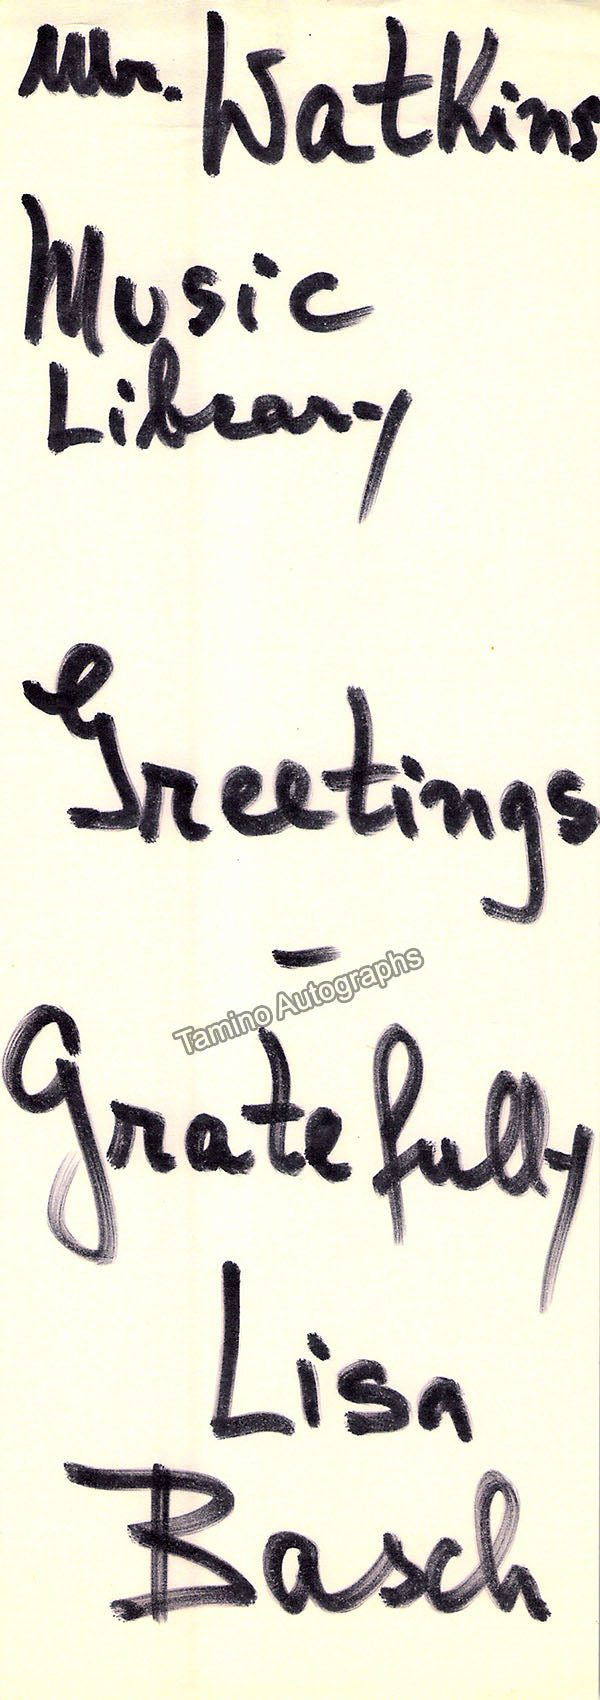 Mr. Watkins
Music
Library
Greetings
–
Tamino Autographs
Gratefully
Lisa
Basch